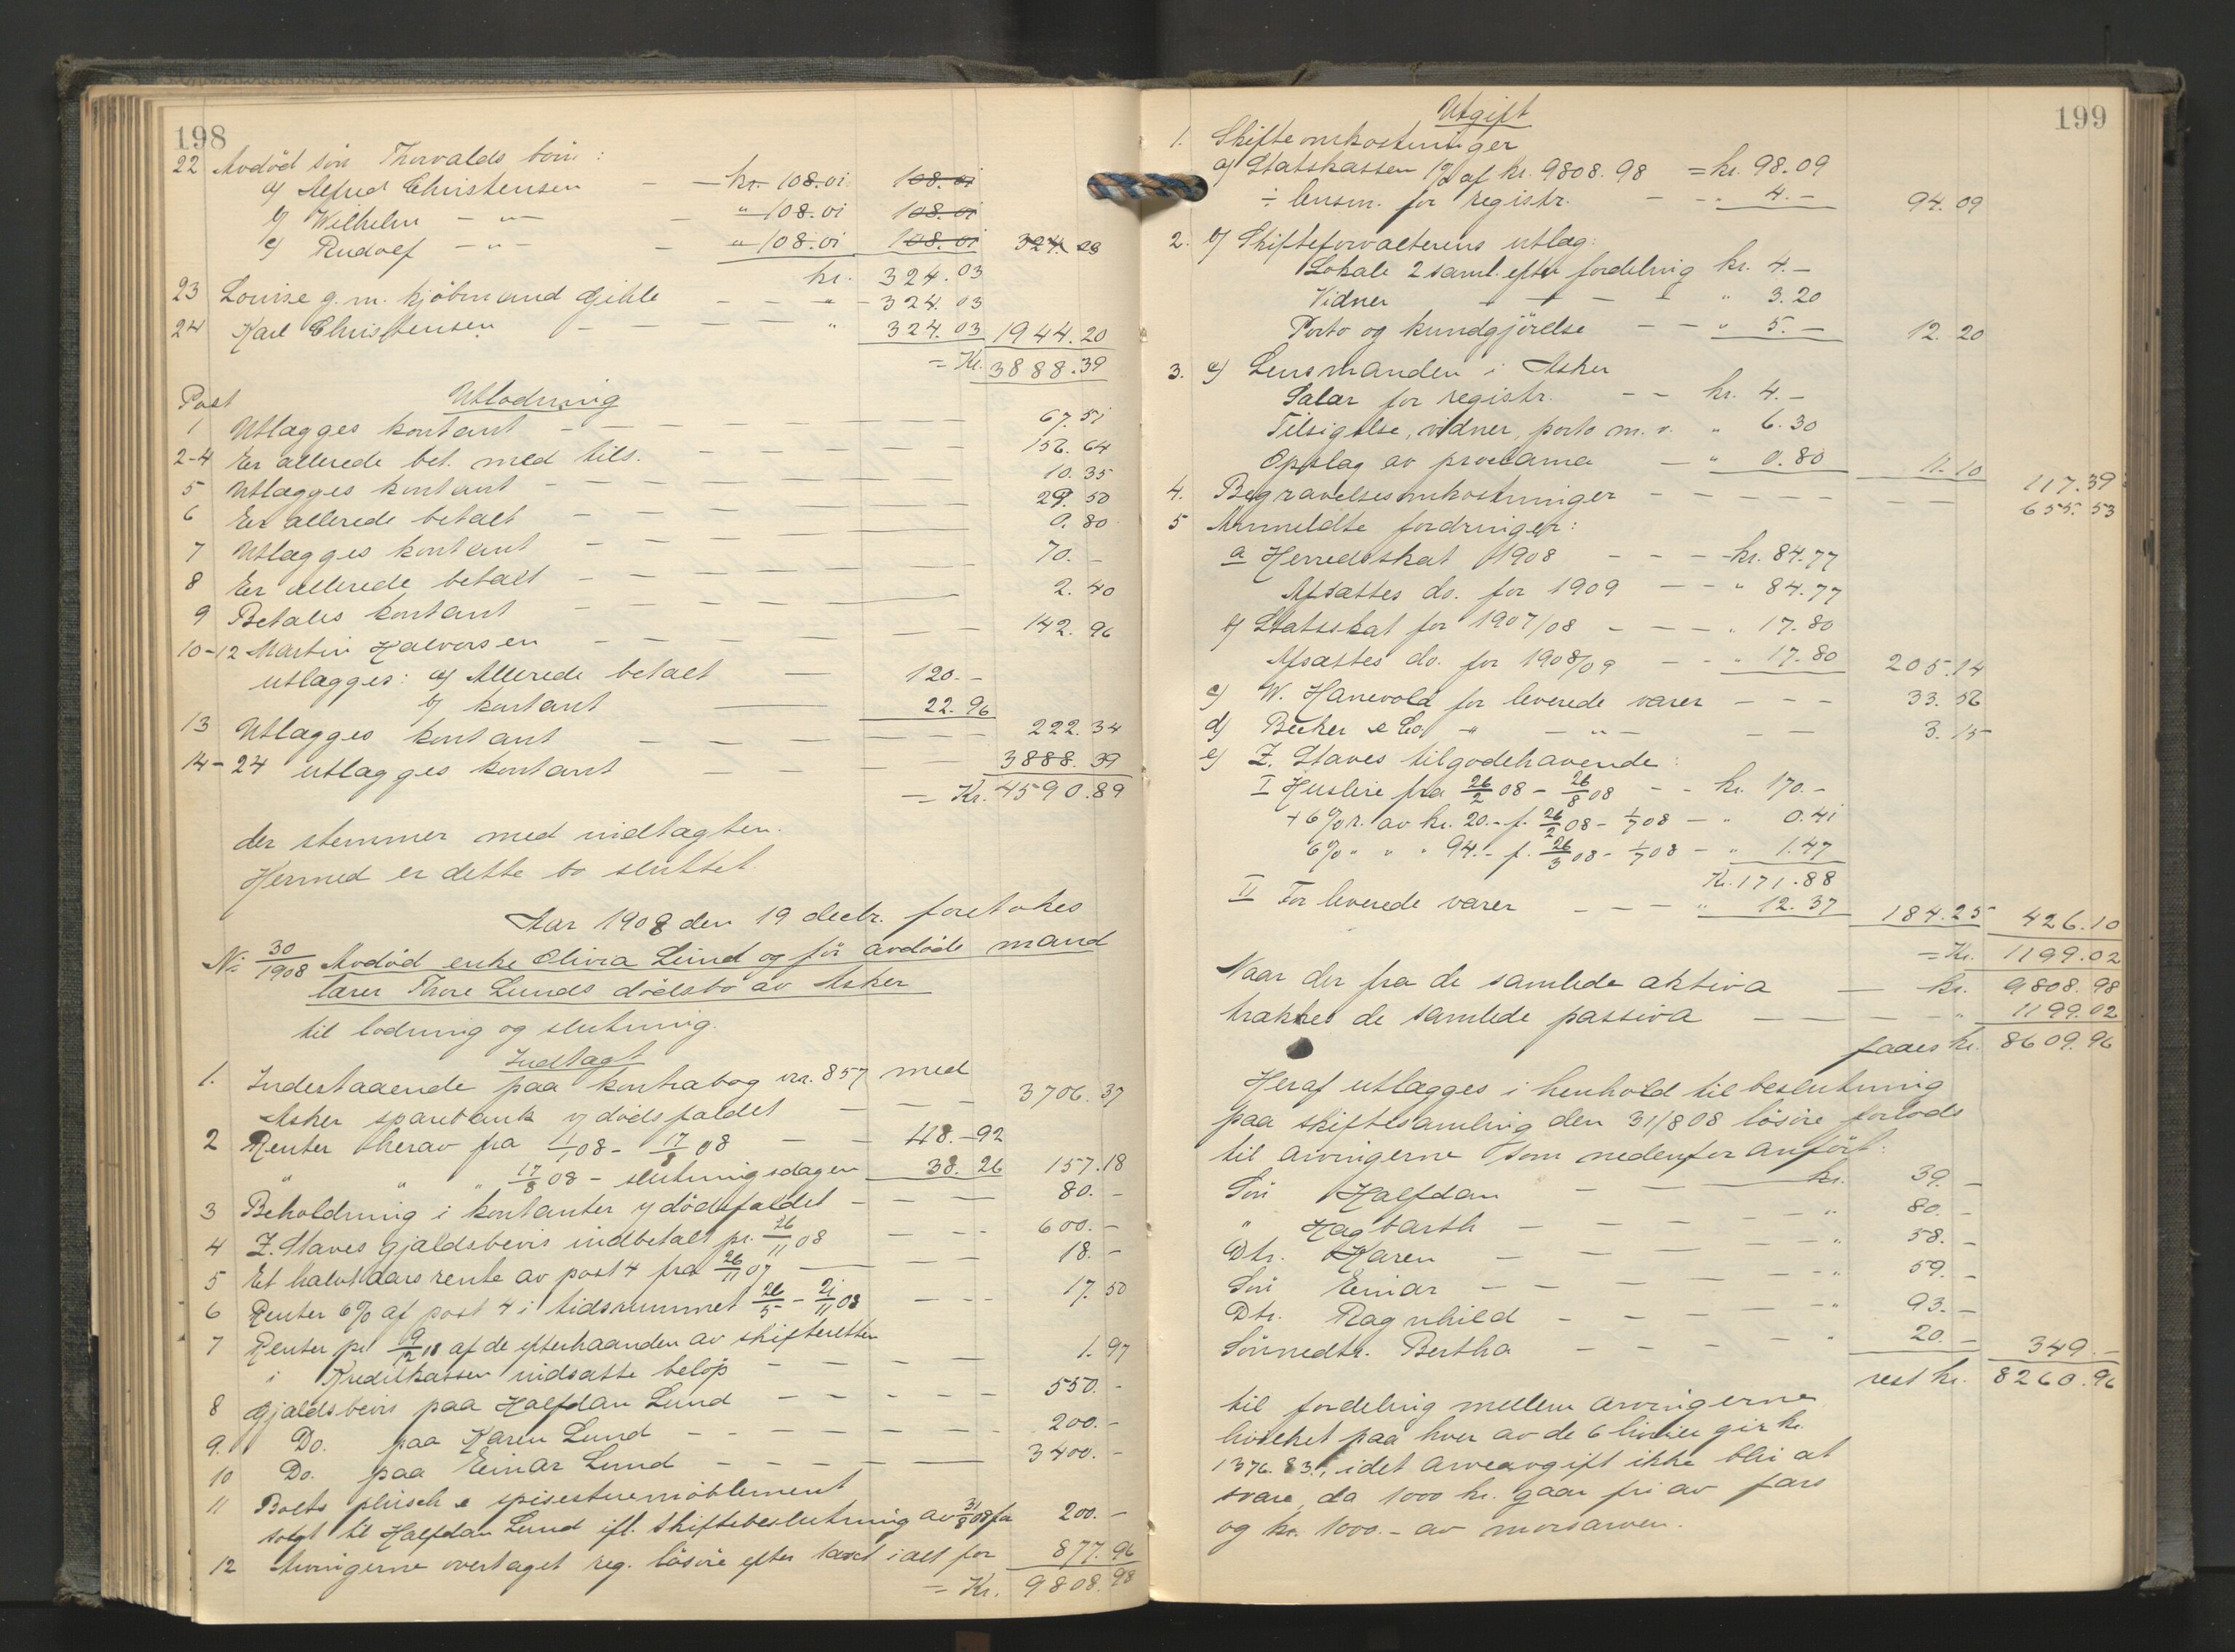 198
22 Avdød søn Thorvalds børn:
a) Alfred Christensen — kr. 108.01 108.01
b) Wilhelm — " — " 108.01 108.01
c) Rudolf — " — " 108.01 108.01 324.03
kr. 324.03
23 Louise g.m. kjøbmand Gihle — " — 324.03
24 Karl Christensen — " 324.03 1944.20
= Kr. 3888.39
Post Utlodning
1 Utlægges kontant — 67.51
2-4 Er allerede bet. med tils. — 156.64
5 Utlægges kontant — 10.35
6 Er allerede betalt — 29.50
7 Utlægges kontant — 0.80
8 Er allerede betalt — 70.-
9 Betales kontant — 2.40
10-12 Martin Halvorsen — 142.96
utlægges: a) Allerede betalt — 120.-
b) kontant — 22.96
13 Utlægges kontant — 222.34
14-24 utlægges kontant — 3888.39
= Kr. 4590.89
der stemmer med indtægten.
Hermed er dette bo sluttet.
Aar 1908 den 19 decbr. foretokes
No 30/1908 Avdød enke Olivia Lund og før avdøde mand
lærer Thore Lunds dødsbo av Asker
til lodning og slutning.
Indtægt
1. Indestaaende paa kontrabog nr. 857 med
Asker sparebank v/ dødsfaldet — 3706.37
2 Renter herav fra 1/1 08 - 17/8 08 — 118.92
" " " 17/8 08 - slutningsdagen 38.26 157.18
3 Beholdning i kontanter v/ dødsfaldet — 80.-
4 Z. Staves gjældsbevis indbetalt pr. 26/11 08 — 600.-
5 Et halvt aars rente av post 4 fra 26/11 07 — 18.-
6 Renter 6% af post 4 i tidsrummet 26/5 - 21/11 08 — 17.50
7 Renter pr. 9/12 08 af de efterhaanden av skifteretten
i Kreditkassen indsatte beløp — 1.97
8 Gjældsbevis paa Halfdan Lund — 550.-
9. Do. paa Karen Lund — 200.-
10 Do. paa Einar Lund — 3400.-
11 Boets plüsch & spisestuemøblement
solgt til Halfdan Lund ifl. skiftebeslutning av 31/8 08 for 200.-
12 Arvingerne overtaget reg. løsøre efter taxt ialt for 877.96
= Kr. 9808.98
199
Utgift
1. Skifteomkostninger
a) Statskassen 1% af kr. 9808.98 = kr. 98.09
÷ lensm. for registr. — " 4.- 94.09
2. b) Skifteforvalterens utlæg:
Lokale 2 saml. efter fordeling kr. 4.-
Vidner — " 3.20
Porto og kundgjørelse — " 5.- 12.20
3. c) Lensmanden i Asker
Salær for registr. — kr. 4.-
Tilsigelse, vidner, porto m.v. " 6.30
Opslag av proclama — " 0.80 11.10 117.39
4. Begravelsesomkostninger — 655.53
5 Anmeldte fordringer:
a Herredsskat 1908 — kr. 84.77
Afsættes do. for 1909 — " 84.77
b) Statsskat for 1907/08 — " 17.80
Afsættes do. for 1908/09 — " 17.80 205.14
c) W. Hanevold for leverede varer — 33.56
d) Becker & Co. — " — " — 3.15
e) Z. Staves tilgodehavende:
I Husleie fra 26/2 08 - 26/8 08 — kr. 170.-
+ 6% r. av kr. 20.- f. 26/2 08 - 1/7 08 — " 0.41
6% " " " 94.- f. 26/3 08 - 1/7 08 — " 1.47
Kr. 171.88
II For leverede varer — " 12.37 184.25 426.10
= Kr. 1199.02
Naar der fra de samlede aktiva — kr. 9808.98
trækkes de samlede passiva — " 1199.02
faaes kr. 8609.96
Heraf utlægges i henhold til beslutning
paa skiftesamling den 31/8 08 løsøre forlods
til arvingerne som nedenfor anført:
Søn Halfdan — kr. 39.-
" Hagbarth — " 80.-
Dtr. Karen — " 58.-
Søn Einar — " 59.-
Dtr. Ragnhild — " 93.-
Sønnedtr. Bertha — " 20.- 349.-
rest kr. 8260.96
til fordeling mellem arvingerne
hvilket paa hver av de 6 linier gir kr.
1376.83, idet arveavgift ikke blir at
svare, da 1000 kr. gaar fri av fars
og kr. 1000.- av morsarven.